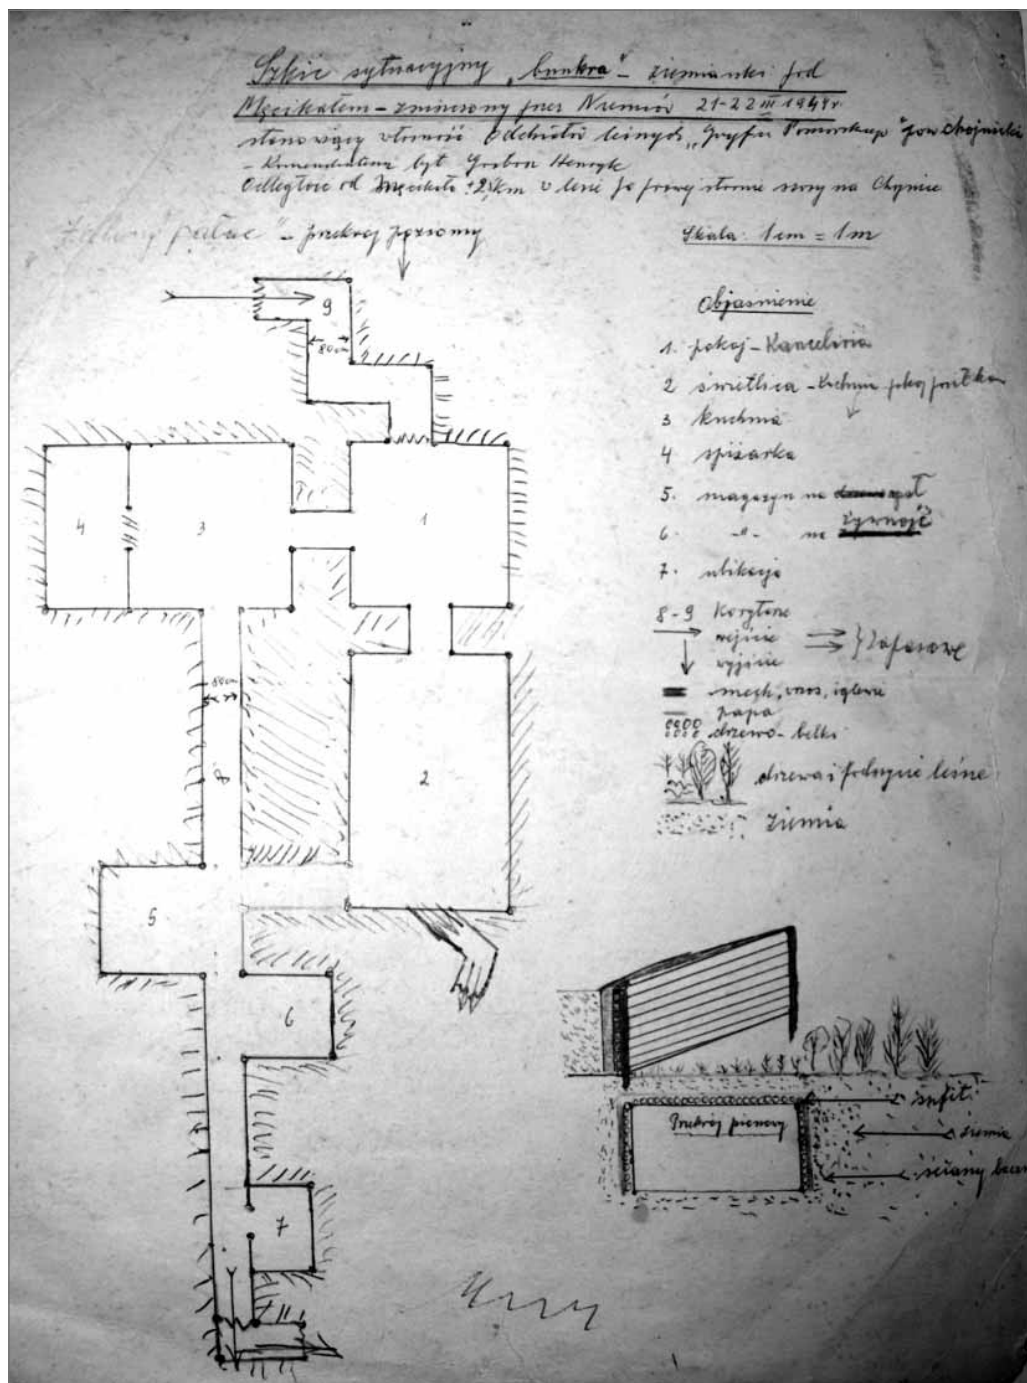 Szkic sytuacyjny „bunkra" – ziemianki pod
Męcikałem – zniesiony przez Niemców 21-22 III 1944 r.
stanowiący własność Oddziałów leśnych „Gryfa Pomorskiego" pow. chojnicki
– Komendantem był Henryk
Odległość od Męcikała ± 2 km w lesie po prawej stronie szosy na
pałac" – przekrój poziomy
Skala: 1 cm = 1 m
Objaśnienie
1. pokój – Kancelaria
2 świetlica –
3 kuchnia
4 spiżarka
5. magazyn na
6. -"- na żywność
7. ubikacja
8-9 Korytarze
wejście
wyjście
} Zapasowe
mech, wrzos, igliwie
papa
drzewo – belki
drzewa i podszycie leśne
ziemia
9
80 cm
4
3
1
80 cm
8
2
5
6
7
Przekrój pionowy
sufit
ziemia
ściany